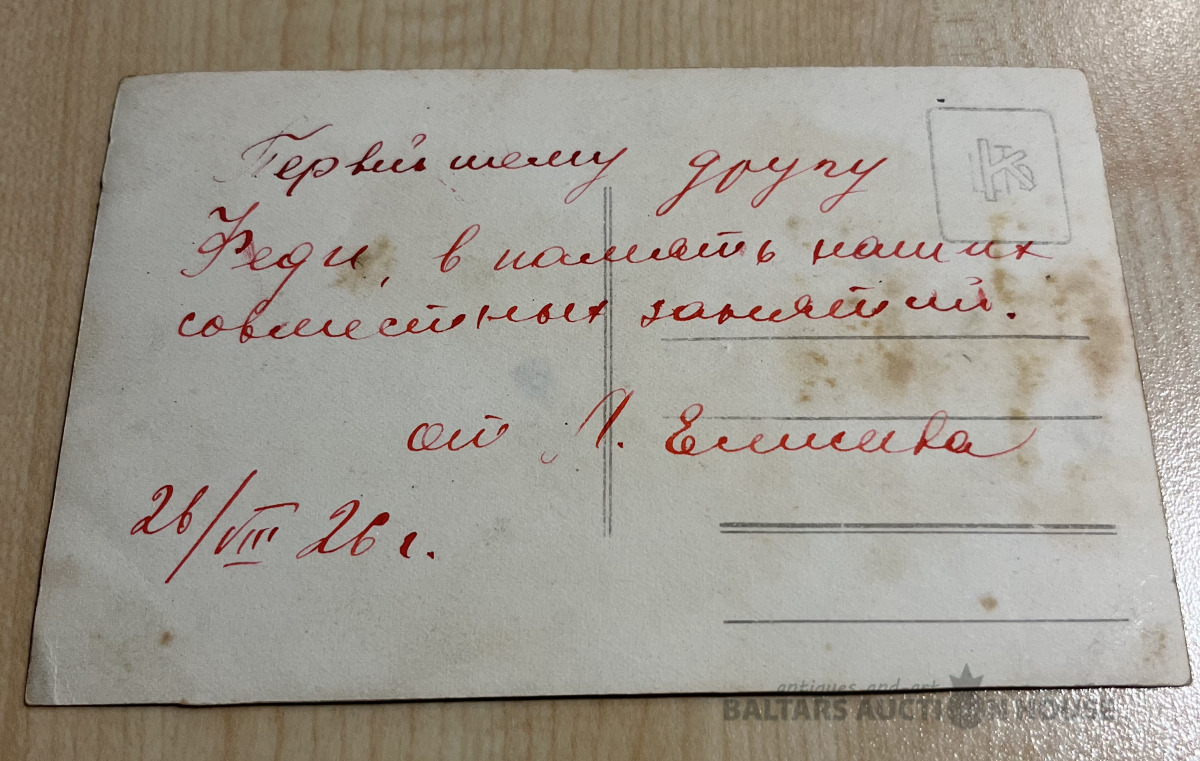 Первейшему другу
Феди, в память наших
совместных занятий.
от
26/VIII 26 г.
antiques and art
BALTARS AUCTION HOUSE